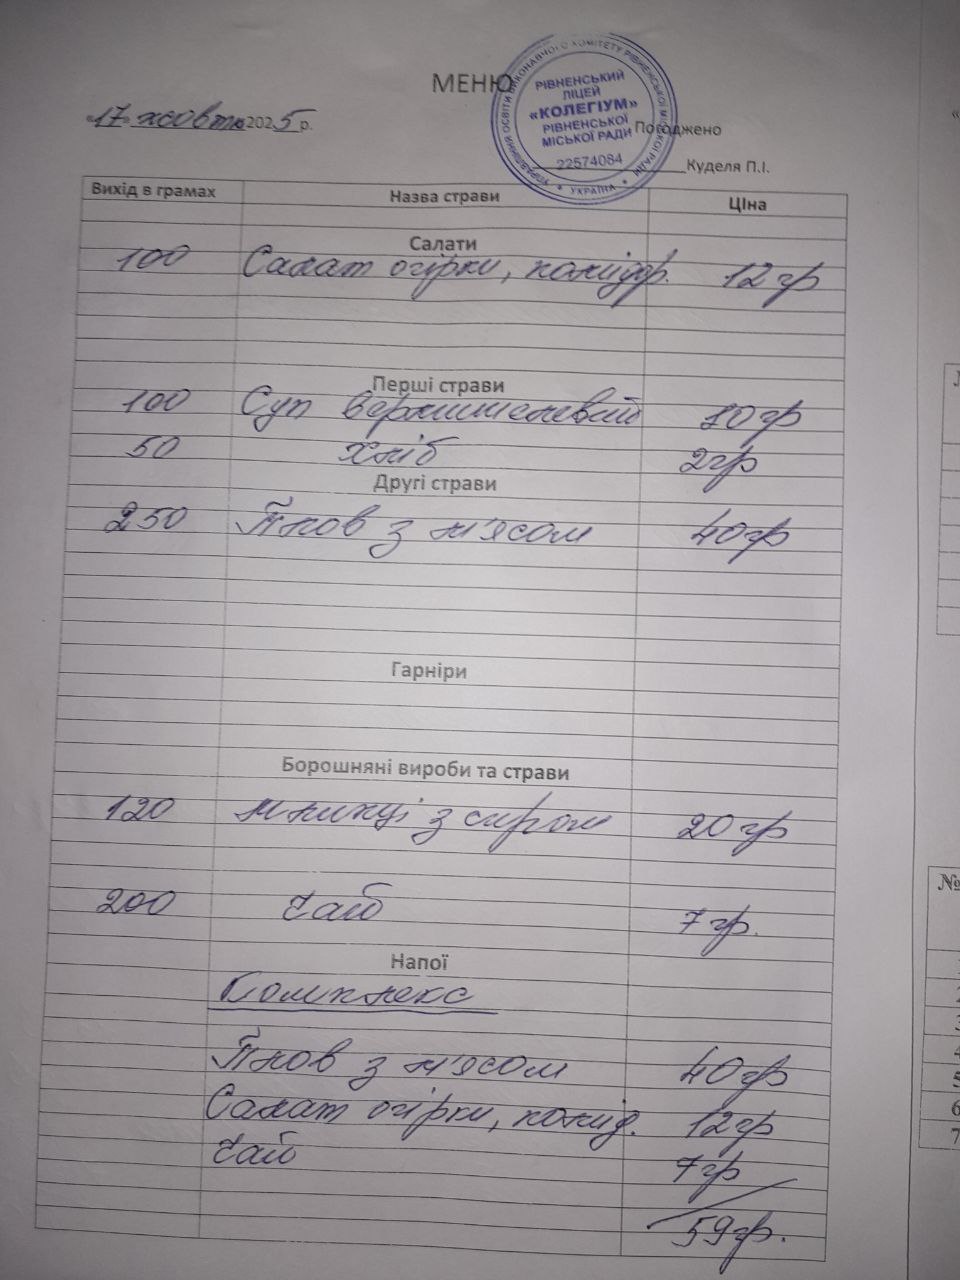 МЕНЮ
УПРАВЛІННЯ ОСВІТИ ВИКОНАВЧОГО КОМІТЕТУ РІВНЕНСЬКОЇ МІСЬКОЇ РАДИ * УКРАЇНА *
РІВНЕНСЬКИЙ
ЛІЦЕЙ
«КОЛЕГІУМ»
РІВНЕНСЬКОЇ
МІСЬКОЇ РАДИ
22574084
«17» жовтня 2025 р.
Погоджено
Куделя П.І.
Вихід в грамах Назва страви Ціна
Салати
100 Салат огірки, помідор. 12 гр
Перші страви
100 Суп вермишелевий 10 гр
50 хліб 2 гр
Другі страви
250 Плов з м'ясом 40 гр
Гарніри
Борошняні вироби та страви
120 млинці з сиром 20 гр
200 чай 7 гр.
Напої
Комплекс
Плов з м'ясом 40 гр
Салат огірки, помід. 12 гр
чай 7 гр
59 гр.
№